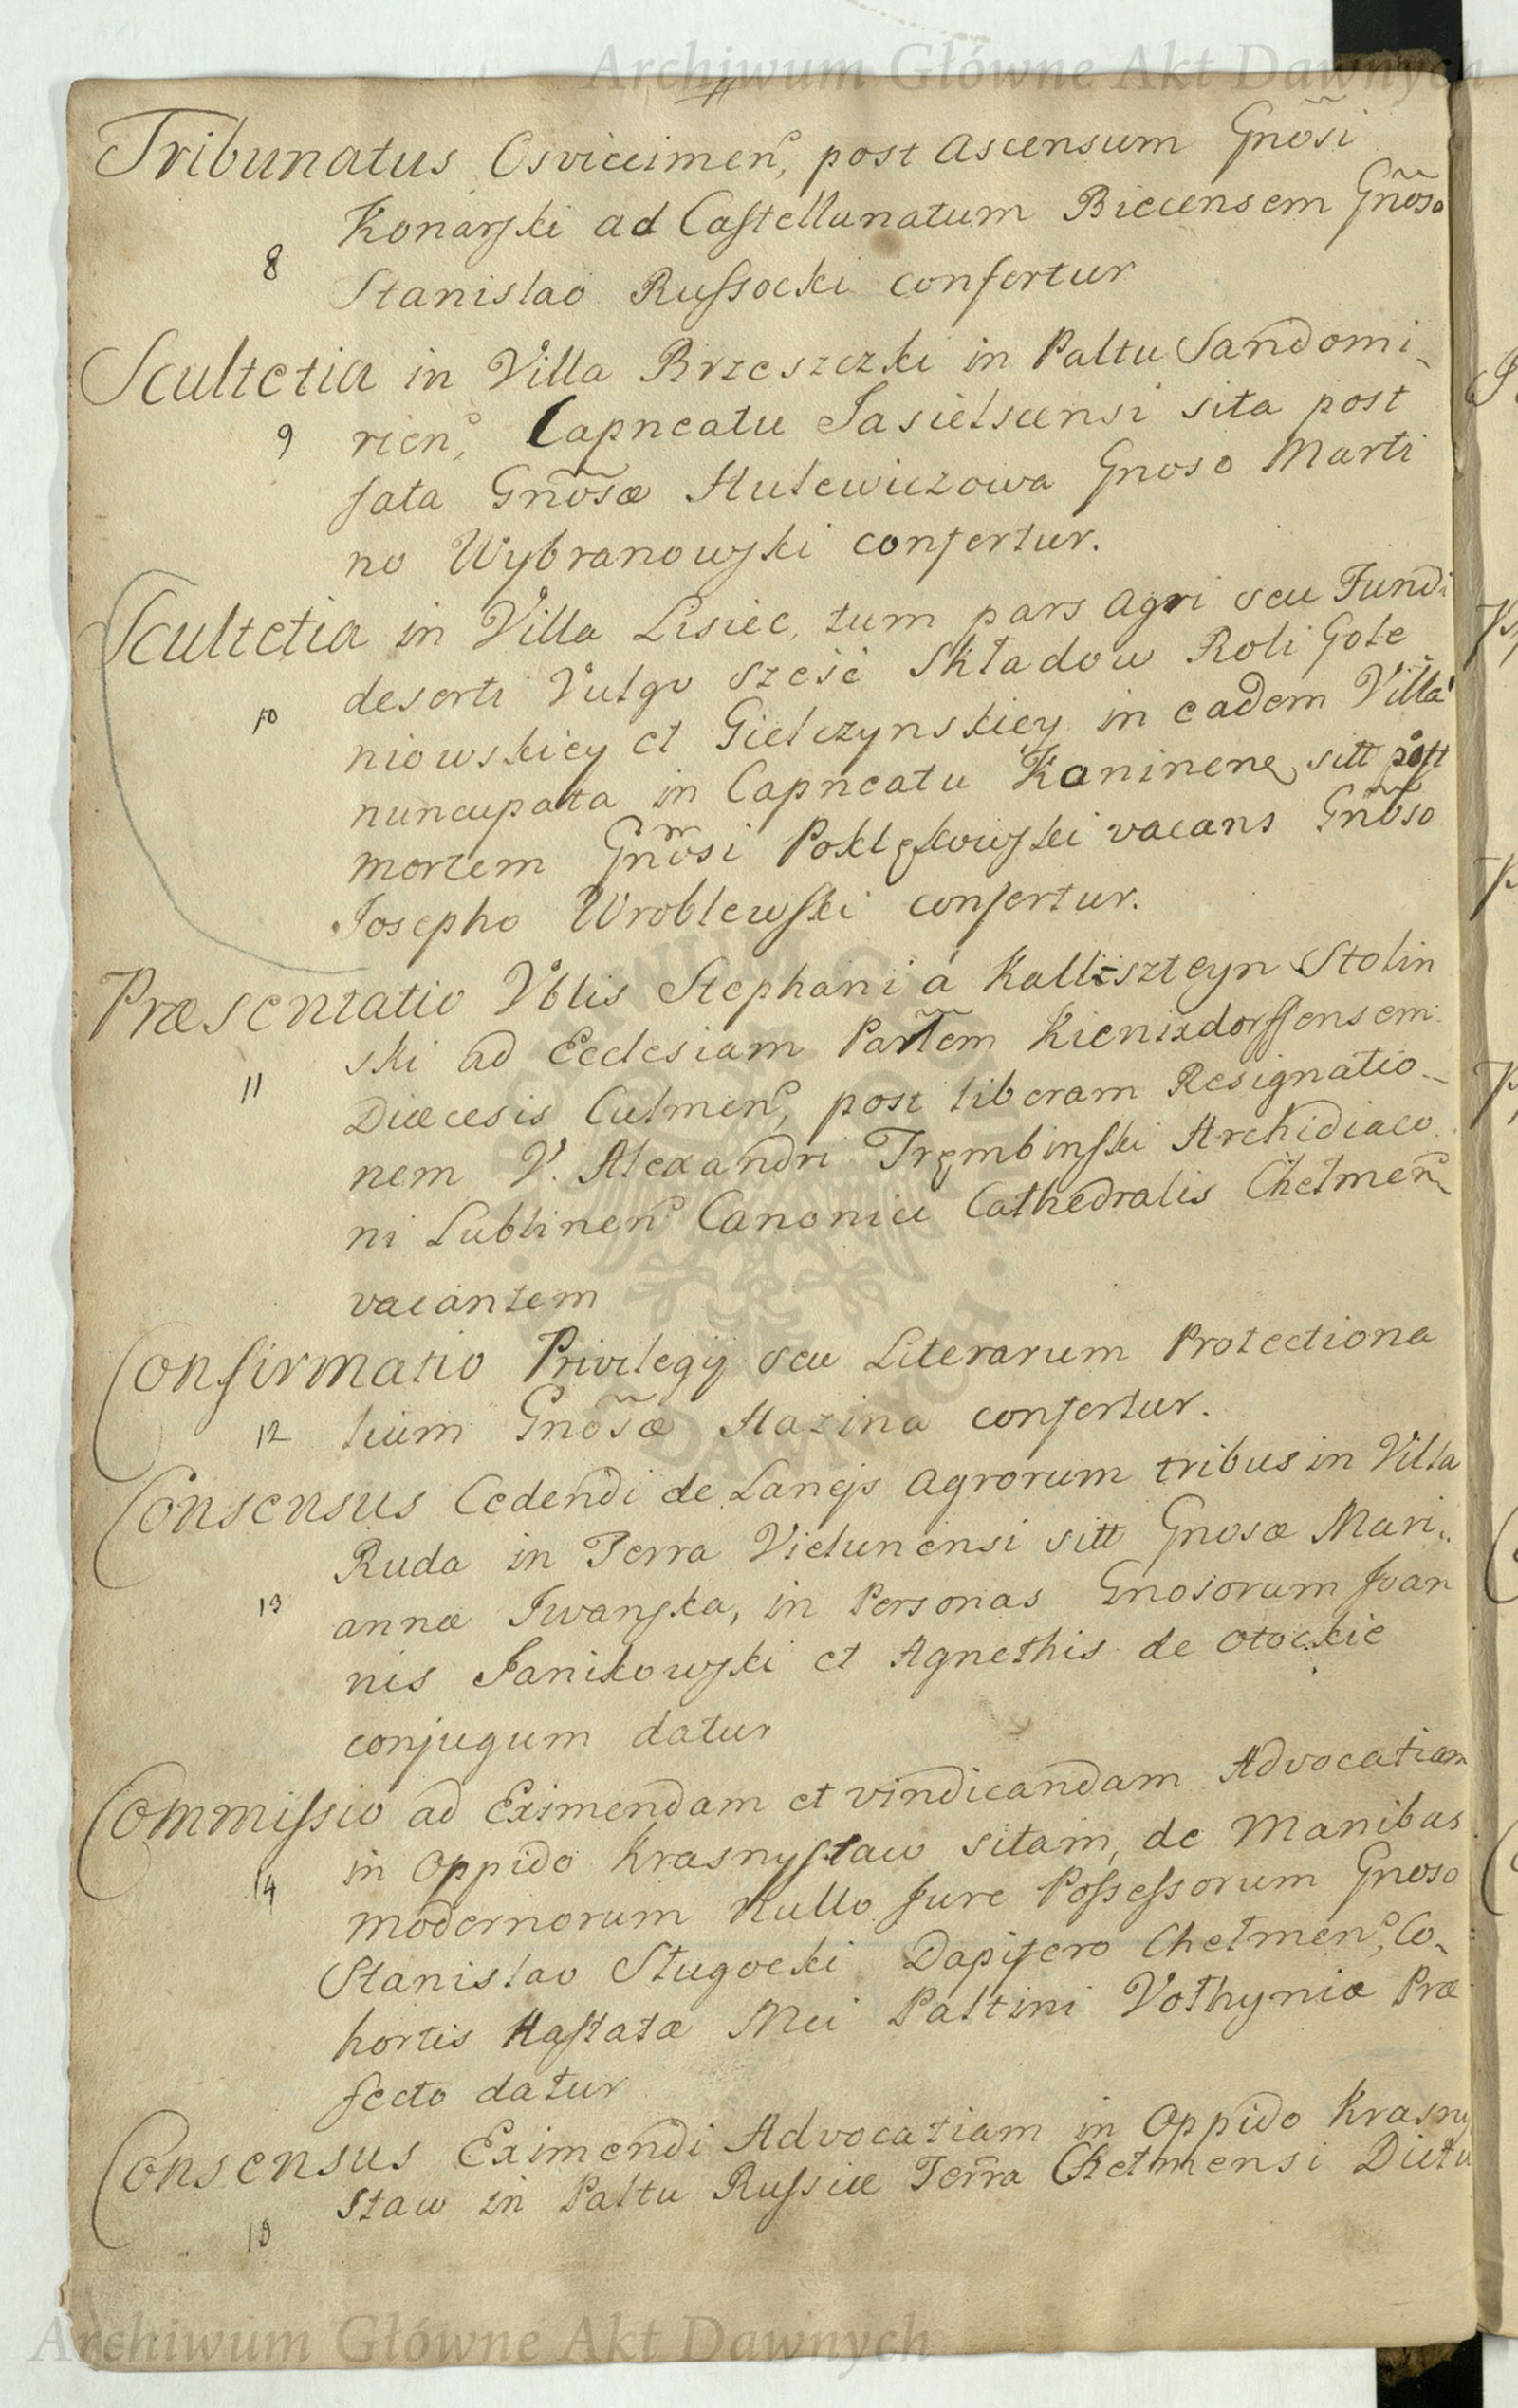 Archiwum Główne Akt Dawnych
Tribunatus Osviecimen, post Ascensum Gnõsi
Konarski ad Castellanatum Biecensem Gnõso
8
Stanislao Russocki confertur
Scultetia in Villa Brzeszczki in Paltu Sandomi-
9 rien, Capneatu Jasielscensi sita post
fata Gnõsæ Hulewiczowa Gnoso Marti
no Wybranowski confertur.
Scultetia in Villa Lisiec, tum pars Agri seu Fundi
deserti Vulgo sześć Składow Roli Gole
10 niowskiey et Gielczynskiey in eadem Villa
nuncupata in Capneatu Koninene sitt post
mortem Gnõsi Poklękowski vacans Gnõso
Josepho Wroblewski confertur.
Præsentatio Vblis Stephani á Kalliszteyn Stolin
ski ad Ecclesiam Partem Kienixdorffensem
11
Diæcesis Culmen, post liberam Resignatio-
nem V. Alexandri Trębinski Archidiaco
ni Lublinen Canonici Cathedralis Chełmen
vacantem
Confirmatio Privilegÿ seu Literarum Protectiona
12 lium Gnõsæ Hazina confertur.
Consensus Cedendi de Lanejs Agrorum tribus in Villa
Ruda in Terra Vielunensi sitt Gnosæ Mari-
13 annæ Iwanska, in Personas Gnosorum Joan
nis Janikowski et Agnethis de Otockie
conjugum datur
Commissio ad Eximendam et vindicandam Advocatiam
14 in Oppido Krasnystaw sitam, de Manibus
modernorum Nullo Jure Possessorum Gnoso
Stanislao Sługocki Dapifero Chełmen, Co-
hortis Hastatæ Mei Paltini Vołhyniæ Præ
fecto datur
Consensus Eximendi Advocatiam in Oppido Krasny
staw in Paltu Russiæ Terra Chełmensi Dictu
15
Archiwum Główne Akt Dawnych